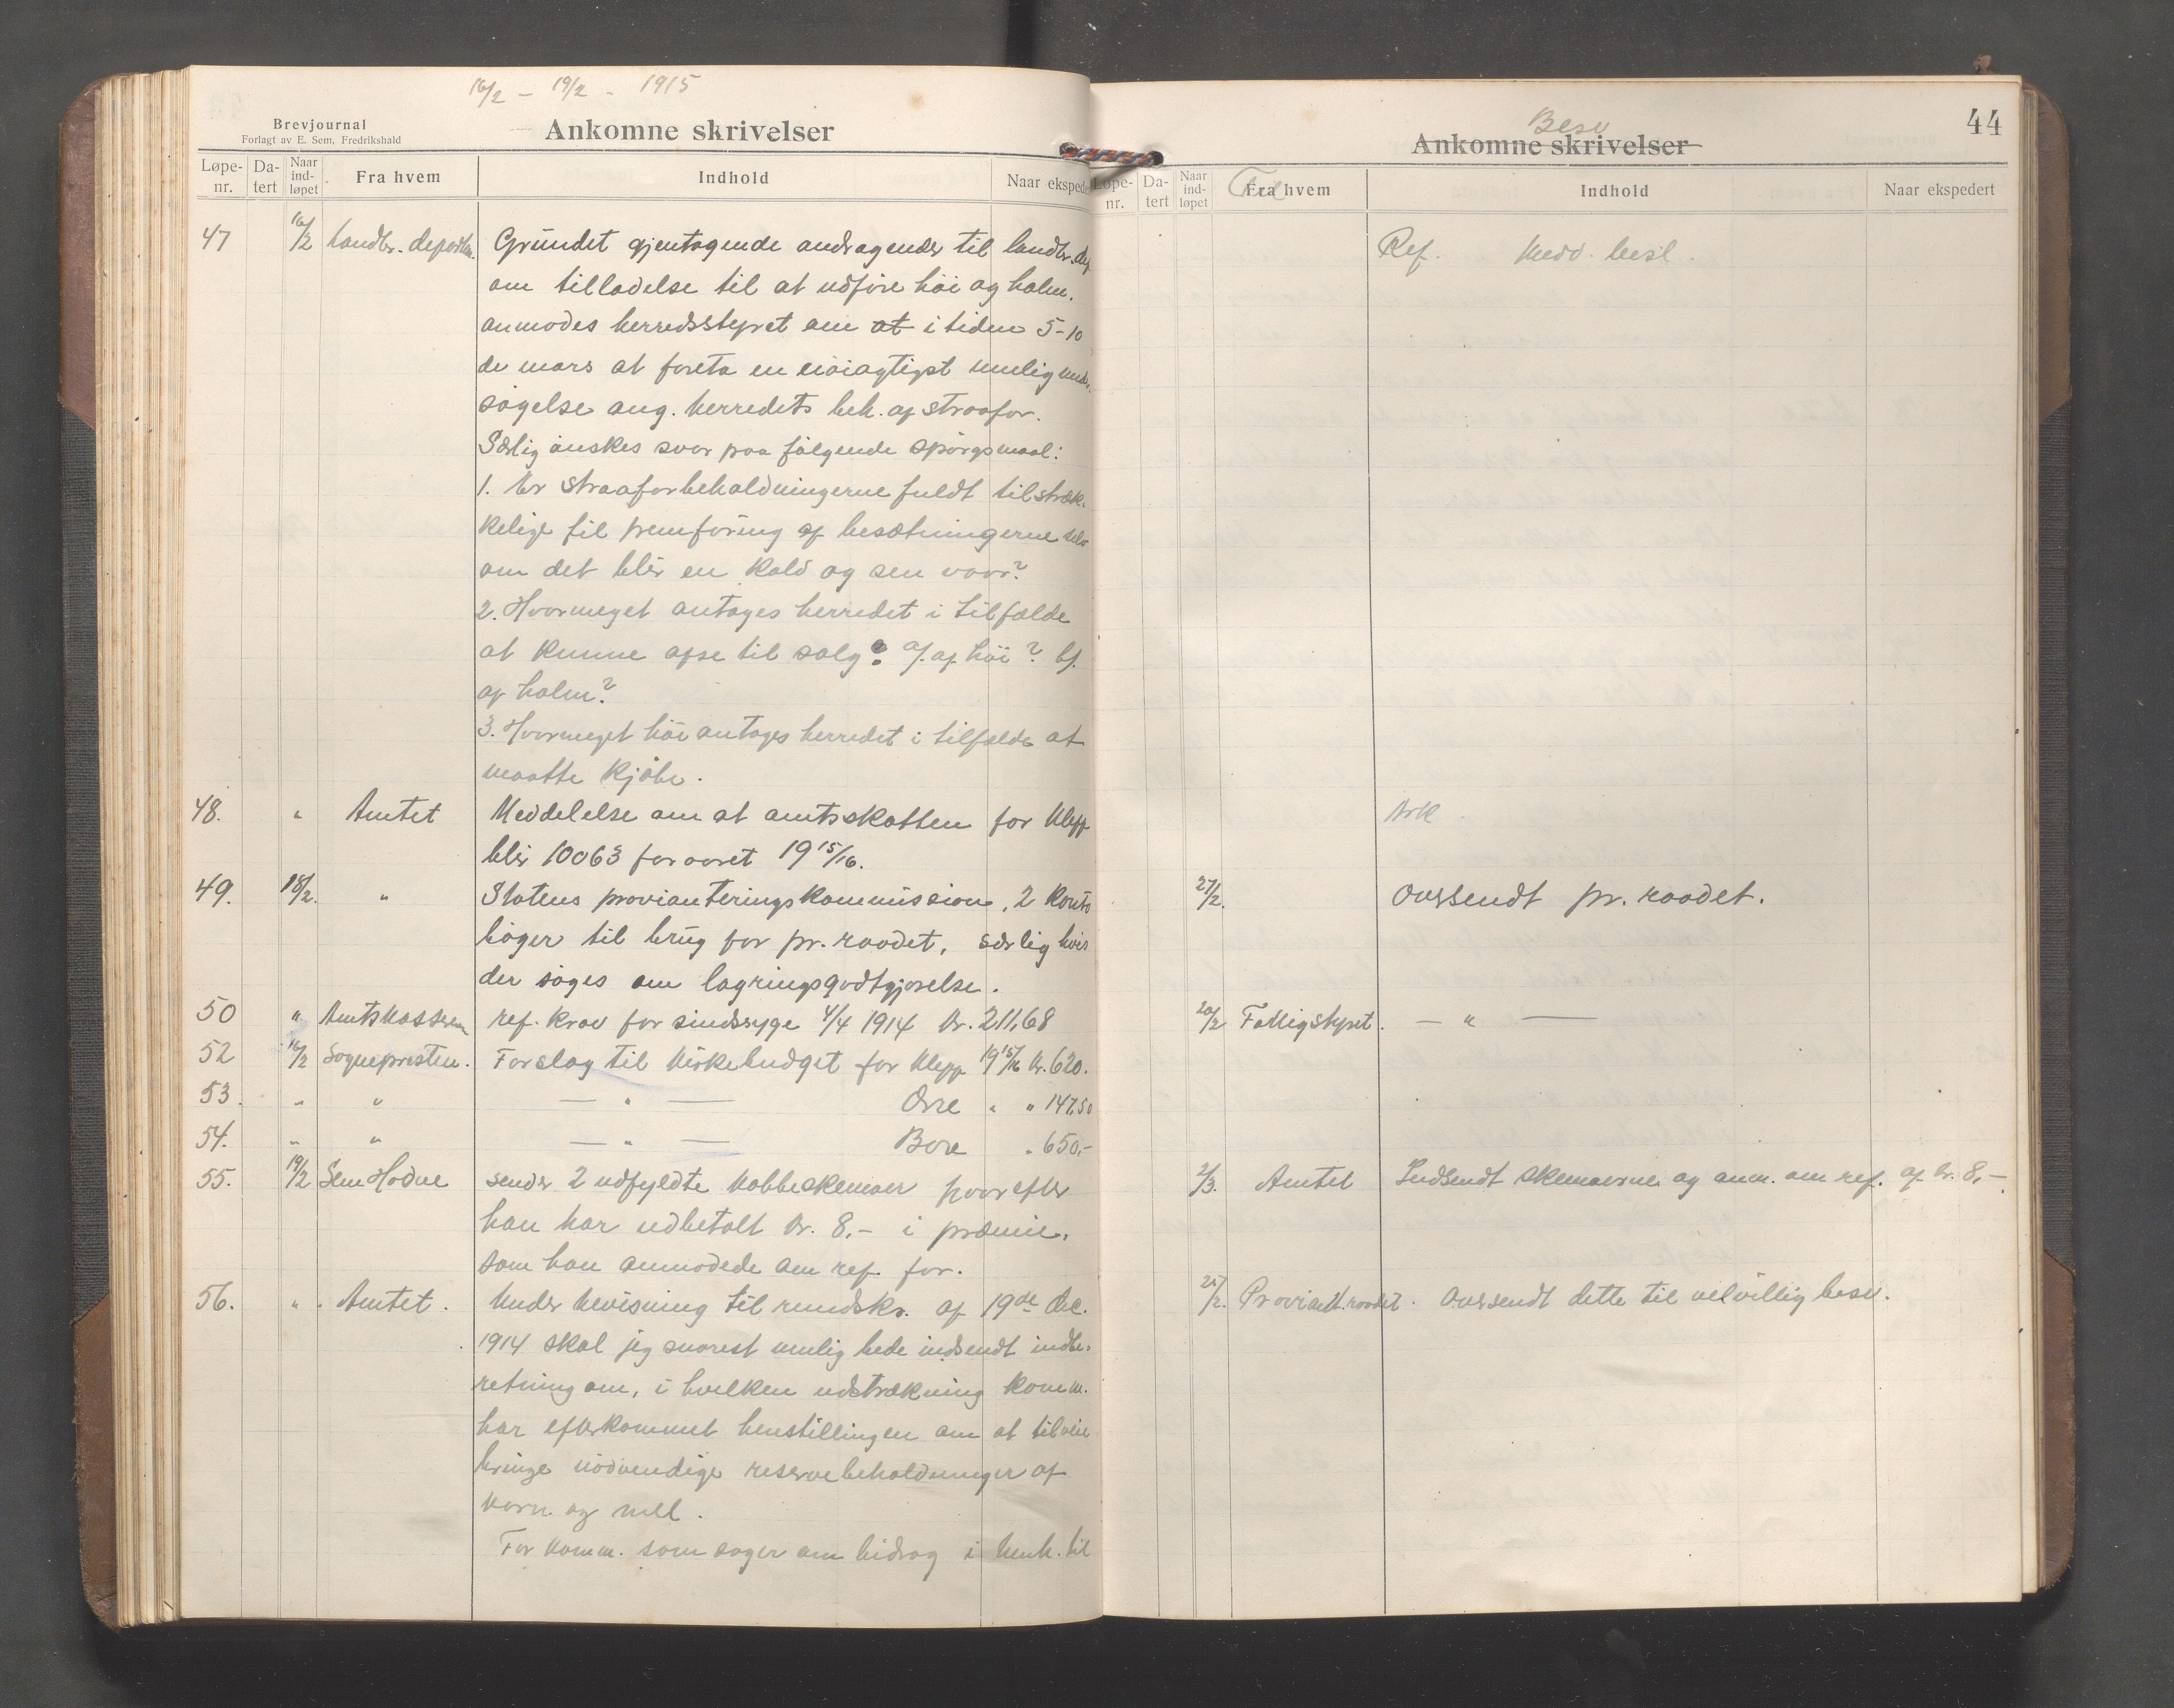 16/2 – 19/2 - 1915
Brevjournal
Forlagt av E. Sem, Fredrikshald
Ankomne skrivelser
Løpe-nr. Da-tert Naar ind-løpet Fra hvem Indhold Naar ekspede
47 16/2 Landbr. departm. Grundet gjentagende andragender til landbr. dep
om tilladelse til at udføre höi og halm.
anmodes herredsstyret om at i tiden 5-10
de mars at foreta en nöiagtigst mulig under.
søgelse ang. herredets beh. af straafor.
Særlig önskes svar paa følgende spörgsmaal:
1. Er straaforbeholdningerne fuldt tilstræk.
kelige til fremforing af besætningerne selv
om det blir en kold og sen vaar?
2. Hvormeget antages herredet i tilfælde
at kunne afse til salg? a/. af höi? b/.
af halm?
3. Hvormeget höi antages herredet i tilfælde at
maatte kjøbe.
48. " Amtet Meddelelse om at amtsskatten for Klepp
blir 10063 for aaret 1915/16.
49. 18/2. " Statens provianteringskommission, 2 konto
böger til brug for pr. raadet, særlig hvis
der söges om lagringsgodtgjørelse.
50 " Amtskasseren ref. krav for sindssyge 4/4 1914 Kr. 211,68
52 16/2 Sognepresten. Forslag til kirkebudget for Klepp 1915/16 Kr. 620.
53. " " — " — Orre " " 147,50
54. " " — " — Bore " 650,-
55. 19/2 Sem Hodne sender 2 udfyldte kobbeskemaer hvorefter
han har udbetalt Kr. 8,- i præmie.
som han anmodede om ref. for.
56. " Amtet. Under henvisning til rundskr. af 19de dec.
1914 skal jeg snarest mulig bede indsendt indbe-
retning om, i hvilken udstrækning komm.
har efterkommet henstillingen om at tilveie
bringe nödvendige reservebeholdninger af
korn og mel.
For komm. som søger om bidrag i henh. til
44
Besv
Ankomne skrivelser
Løpe-nr. Da-tert Naar ind-løpet Fra hvem Til Indhold Naar ekspedert
Ref. Medd. besl.
Ark
27/2. Oversendt pr. raadet.
20/2 Fattigstyret. — " —
2/3. Amtet Indsendt skemaerne og anm. om ref. af kr. 8,-
25/2. Proviant.raadet. Oversendt dette til velvillig besv.